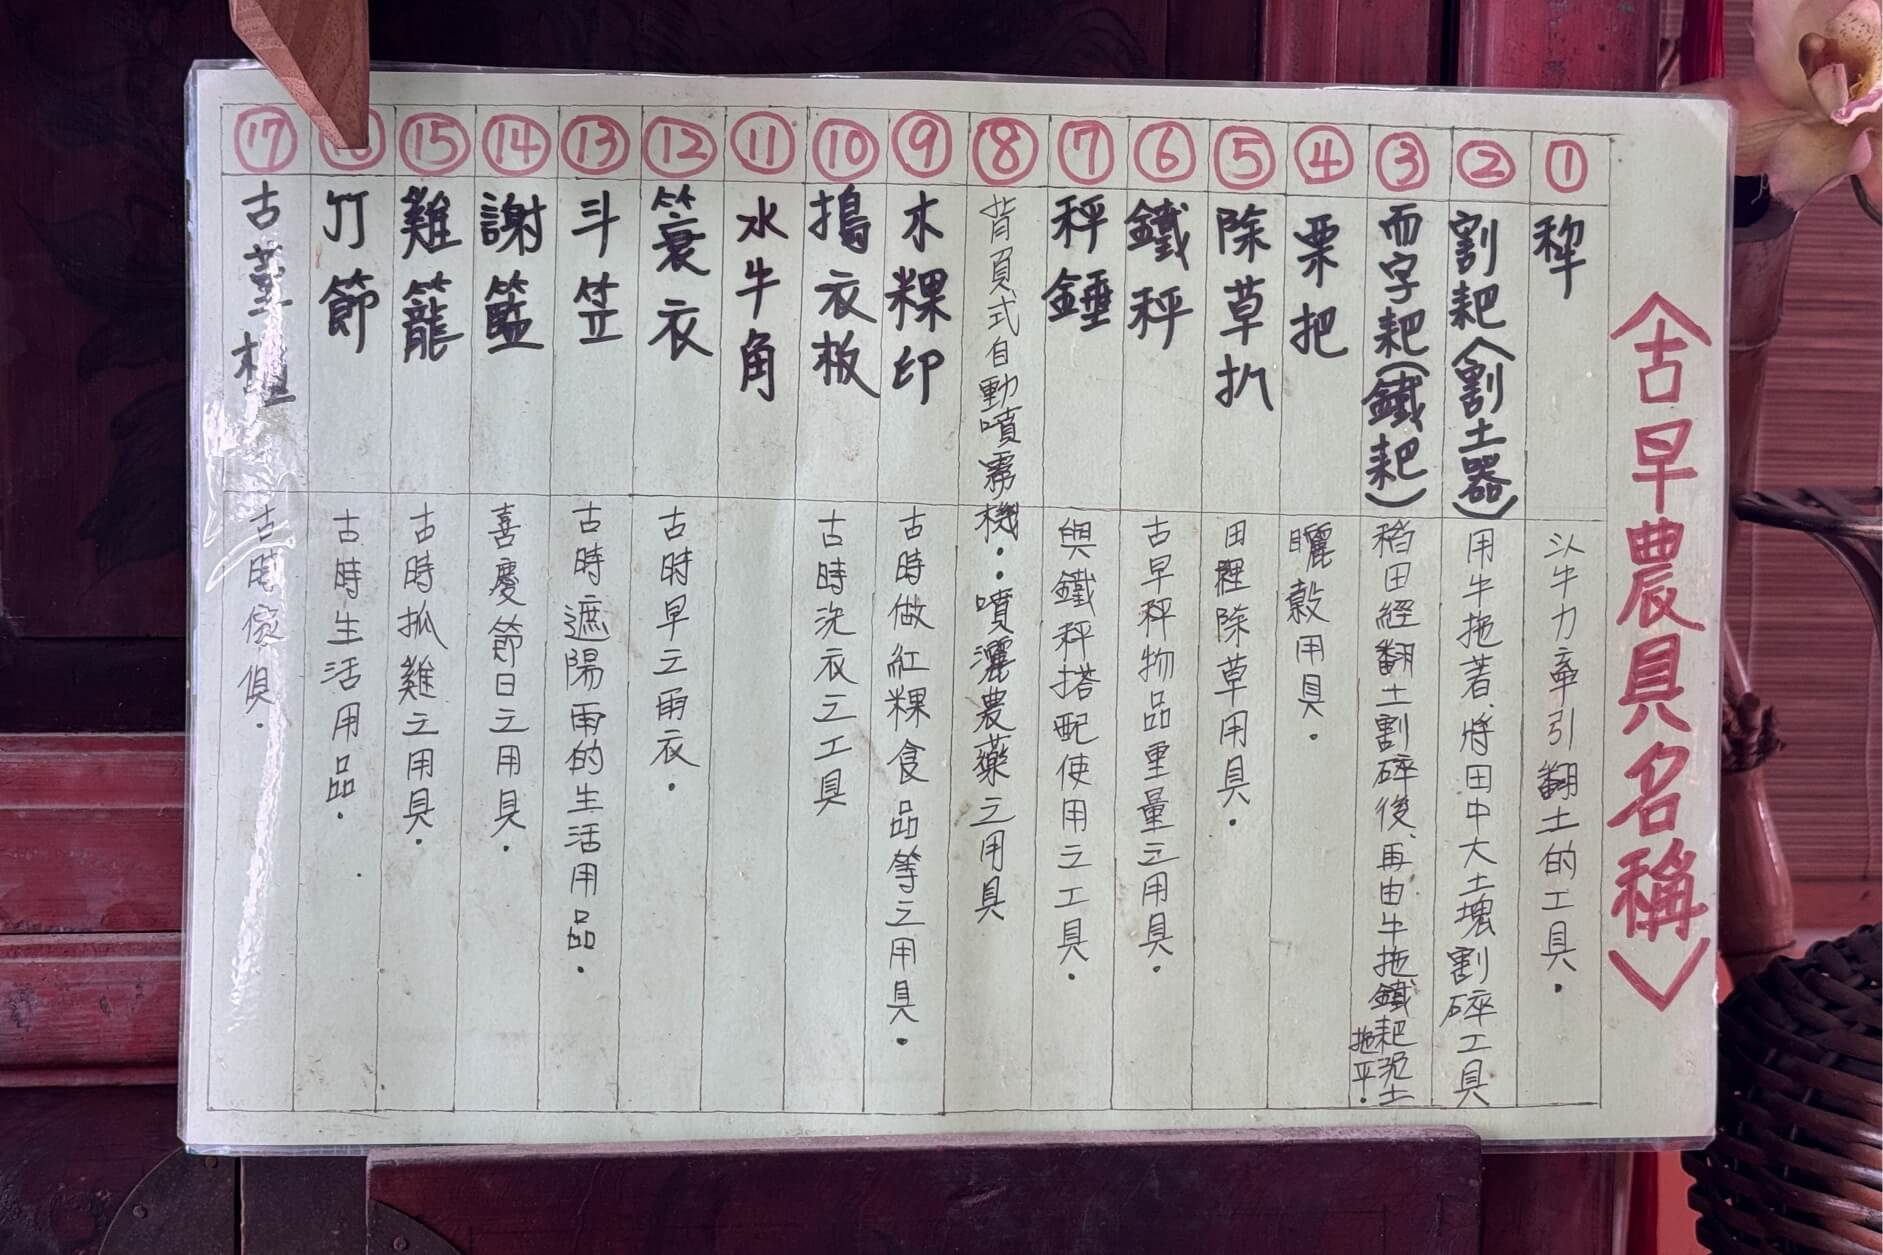 〈古早農具名稱〉
①
犂
以牛力牽引翻土的工具.
②
割耙(割土器)
用牛拖著、將田中大土塊割碎工具
③
而字耙(鐵耙)
稻田經翻土割碎後、再由牛拖鐵耙把土
拖平.
④
栗把
曬穀用具.
⑤
除草扒
田裡除草用具.
⑥
鐵秤
古早秤物品重量之用具.
⑦
秤錘
與鐵秤搭配使用之工具.
⑧
背負式自動噴霧機..噴灑農藥之用具
⑨
木粿印
古時做紅粿食品等之用具.
⑩
搗衣板
古時洗衣之工具
⑪
水牛角
⑫
簑衣
古時早之雨衣.
⑬
斗笠
古時遮陽雨的生活用品.
⑭
謝籃
喜慶節日之用具.
⑮
雞籠
古時抓雞之用具.
竹節
古時生活用品.
⑰
古
古時傢俱.